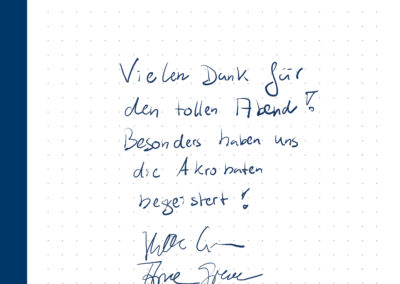 Vielen Dank für
den tollen Abend!
Besonders haben uns
die Akrobaten
begeistert!